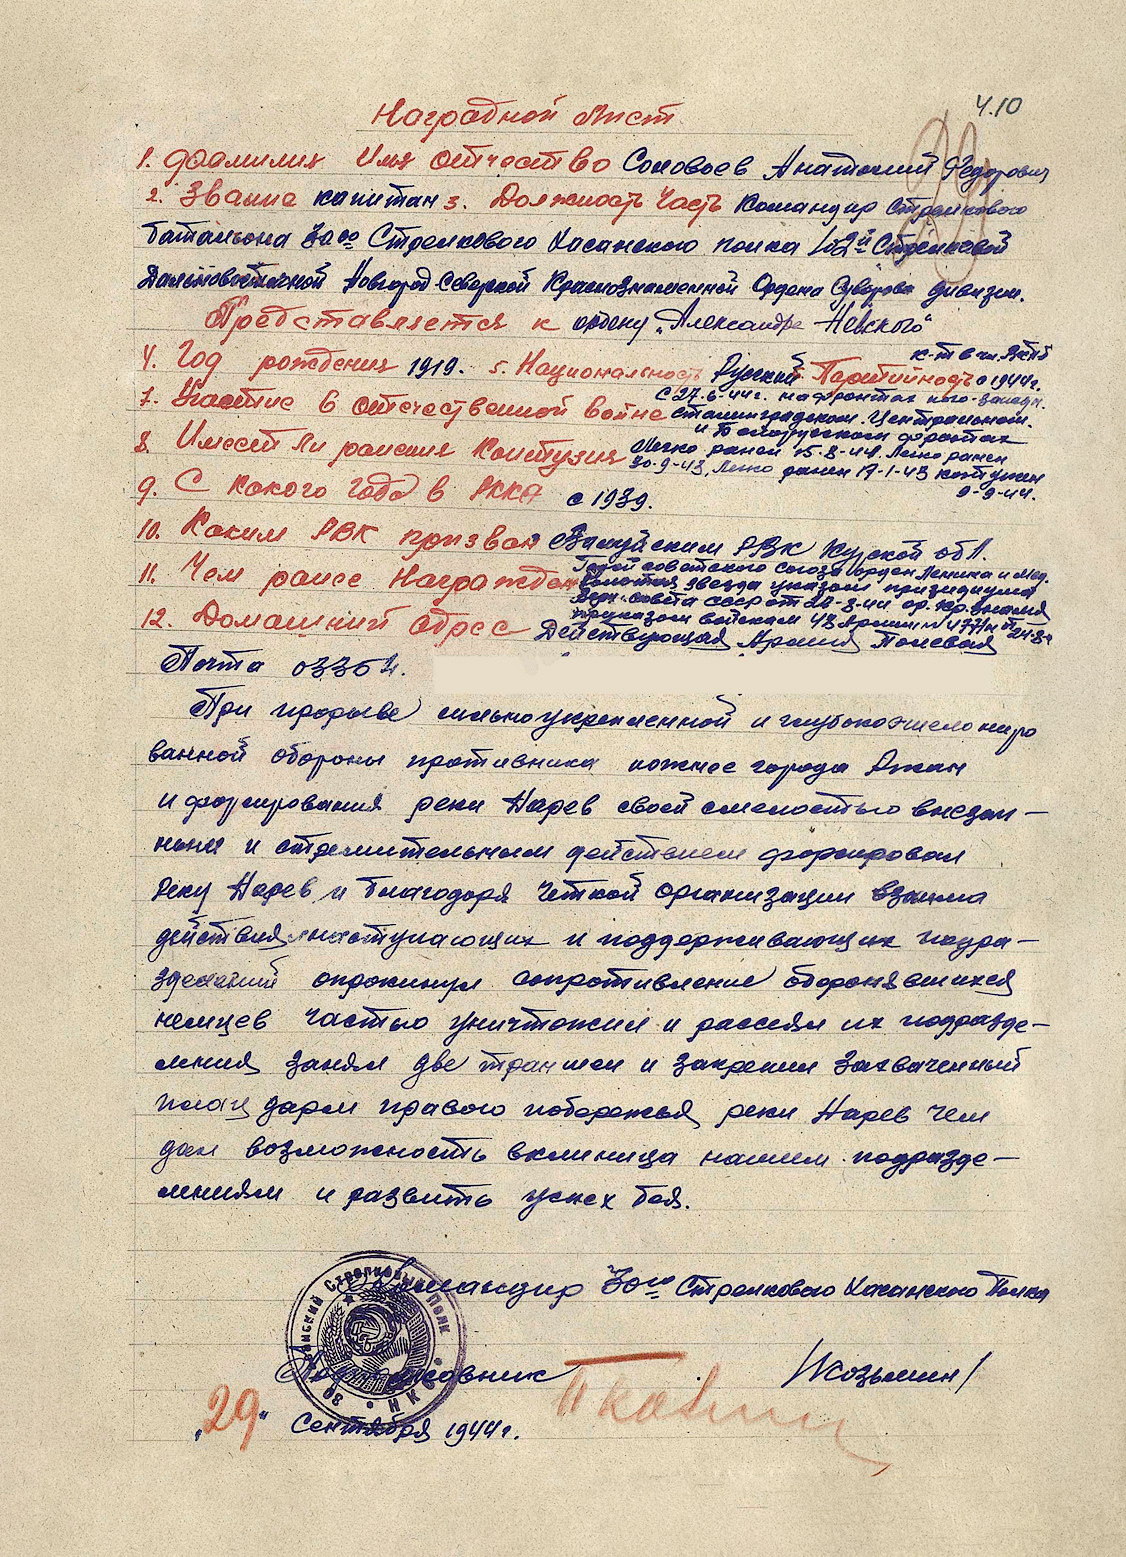 4.10
Наградной Лист
1. Фамилия Имя Отчество Соловьев Анатолий Федорович
2. Звание капитан 3. Должность Часть Командир стрелкового
батальона 30го Стрелкового Хасанского полка 102й Стрелковой
Дальневосточной Новгород-Северской Краснознаменной Ордена Суворова дивизии.
Представляется к ордену „Александра Невского"
к-т в чл. ВКПб
4. Год рождения 1919. 5. Национальность Русский Партийность с 1944г.
с 27.6-44г. на фронтах юго-западн.
7. Участие в отечественной войне Сталинградском. Центральном.
и Белорусском фронтах
8. Имеет ли ранения Контузии Легко ранен 15-8-44. Легко ранен
30-9-43, Легко ранен 17-1-43 контужен
9-9-44.
9. С какого года в РККА с 1939.
10. Каким РВК призван Валуйским РВК Курской обл.
Герой советского союза орден Ленина и мед.
11. Чем ранее Награжден Золотая звезда указом призидиума
Верх. совета СССР от 24-8-44 ор. Кр. знамя
приказом войскам 48 Армии
12. Домашний Адрес Действующая Армия Полевая
Почта 03364.
При прорыве сильно укрепленной и глубоко эшелониро
ванной обороны противника южнее города Рожан
и форсирования реки Нарев своей смелостью внезап-
ным и стремительным действием форсировал
реку Нарев и благодоря четкой организации взаимо
действия наступающих и поддерживающих подра-
зделений опрокинул сопротивление оборонявшихся
немцев частью уничтожил и рассеял их подразде-
ления занял две траншеи и закрепил захваченный
плацдарм правого побережья реки Нарев чем
дал возможность вклиница нашим подразде-
лениям и развить успех боя.
Командир 30го Стрелкового Хасанского Полка
Подполковник /Козьмин/
„29" Сентября 1944г.
Стрелковый Полк
НКО